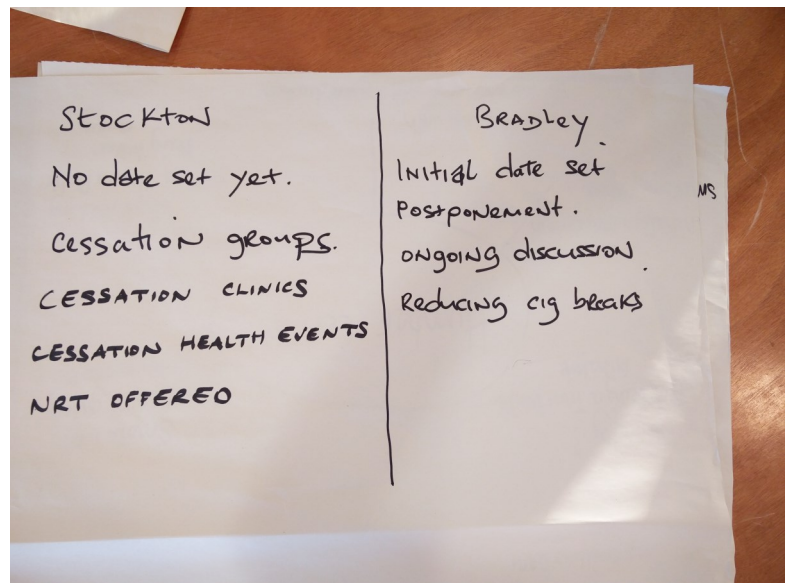 Stockton
No date set yet.
Cessation groups.
CESSATION CLINICS
CESSATION HEALTH EVENTS
NRT OFFERED
BRADLEY
Initial date set
Postponement.
ongoing discussion
Reducing cig breaks
MS